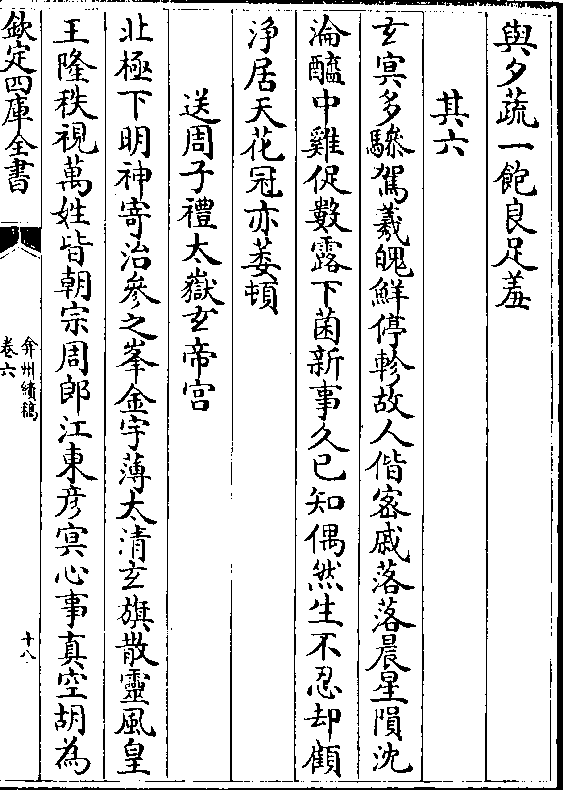 與夕蔬一飽良足羞
其六
玄冥多驂駕羲魄鮮停軫故人偕密戚落落晨星隕沈
淪醯中雞促數露下菌新事久已知偶然生不忍却顧
浄居天花冠亦萎頓
送周子禮太嶽玄帝宫
北極下明神寄治參之峯金宇薄太清玄旗散靈風皇
王隆秩視萬姓皆朝宗周郎江東彦冥心事真空胡為
欽定四庫全書
弇州續稿
卷六
十八